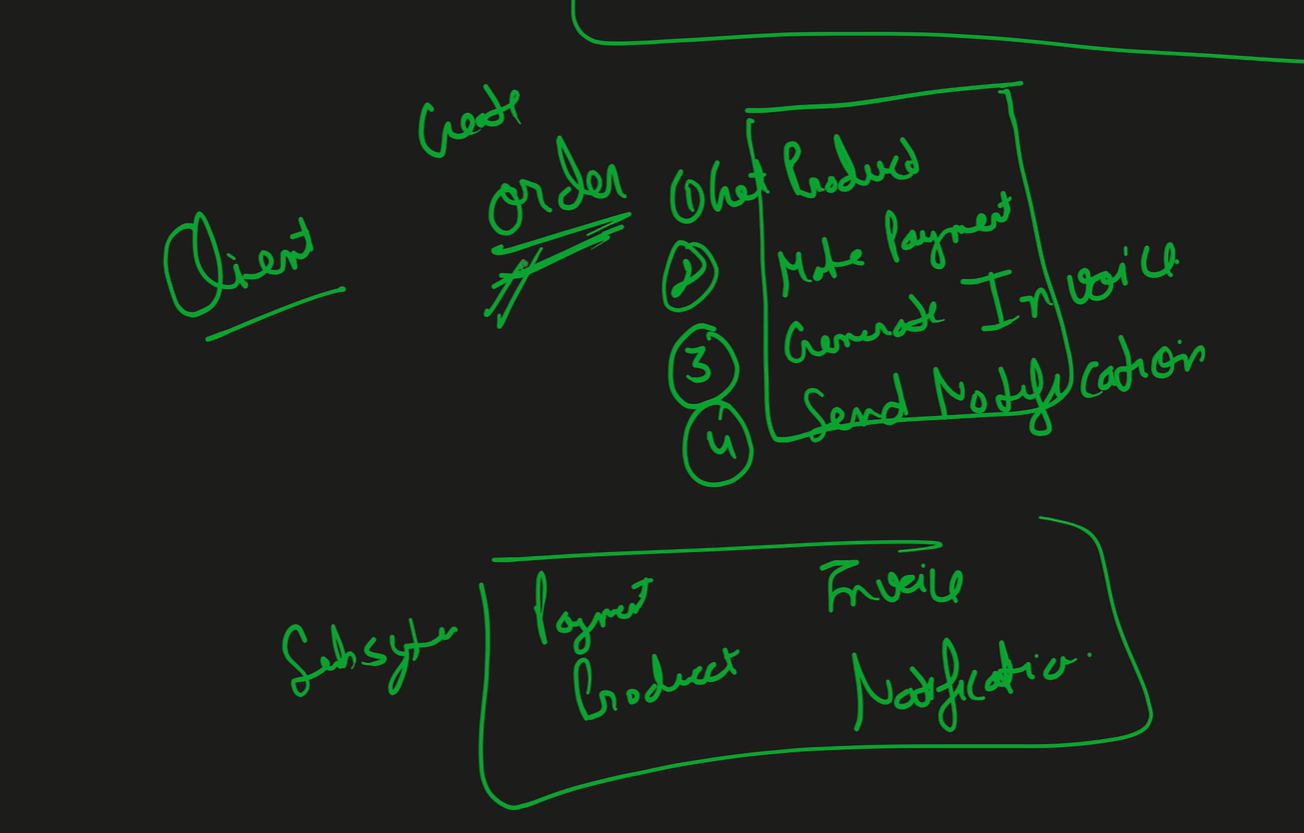 Create
Order
Client
① Get Product
② Make Payment
③ Generate Invoice
④ Send Notification
Subsystem
Payment
Invoice
Product
Notification